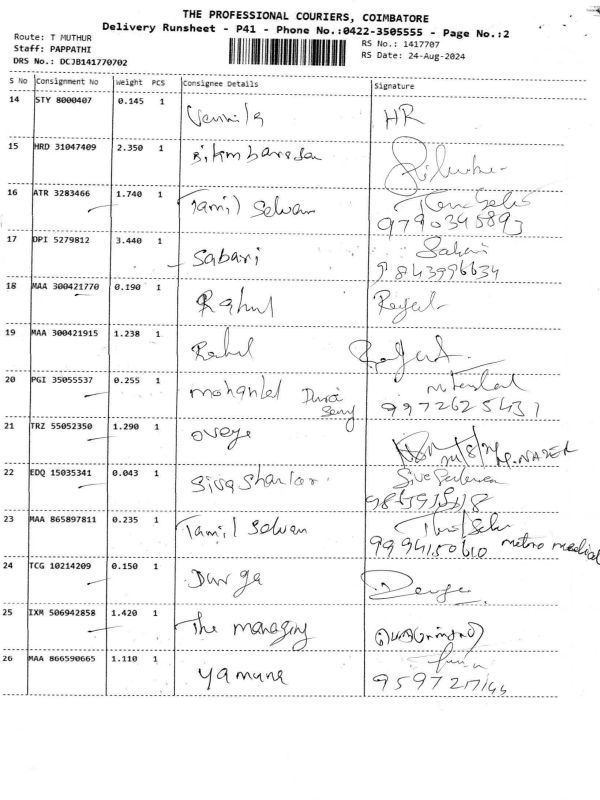 THE PROFESSIONAL COURIERS, COIMBATORE
Delivery Runsheet - P41 - Phone No.:0422-3505555 - Page No.:2
Route: T MUTHUR
Staff: PAPPATHI
DRS No.: DCJB141770702
RS No.: 1417707
RS Date: 24-Aug-2024
S No Consignment No Weight PCS Consignee Details Signature
14 STY 8000407 0.145 1 HR
15 HRD 31047409 2.350 1
16 ATR 3283466 1.740 1 Tamil Selvan
9790345893
17 DPI 5279812 3.440 1 Sabari
9843996634
18 MAA 300421770 0.190 1 Rahul
19 MAA 300421915 1.238 1 Rahul
20 PGI 35055537 0.255 1 mohanlal Durai
Samy 9972625431
21 TRZ 55052350 1.290 1 oveya M.NAZER
22 EDQ 15035341 0.043 1
23 MAA 865897811 0.235 1 Tamil Selvan
9994150610 metro medical
24 TCG 10214209 0.150 1 Durga Durga
25 IXM 506942858 1.420 1 The managing
26 MAA 866590665 1.110 1 yamuna